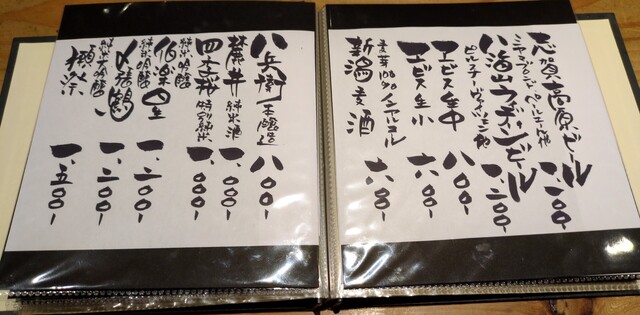 志賀高原ビール 一、二〇〇-
ペールエール他
八海山ヴァイツェンビール 一、二〇〇-
ピルスナー・ヴァイツェン他
エビス生中 八〇〇-
エビス生小 六〇〇-
麦芽100%ノンアルコール
新潟麦酒 六八〇-
八兵衛 本醸造 八〇〇-
麓井 純米酒 一、〇〇〇-
四季桜 特別純米 一、〇〇〇-
純米吟醸
伯楽星 一、二〇〇-
純米吟醸
〆張鶴 一、二〇〇-
純米大吟醸
獺祭 一、五〇〇-